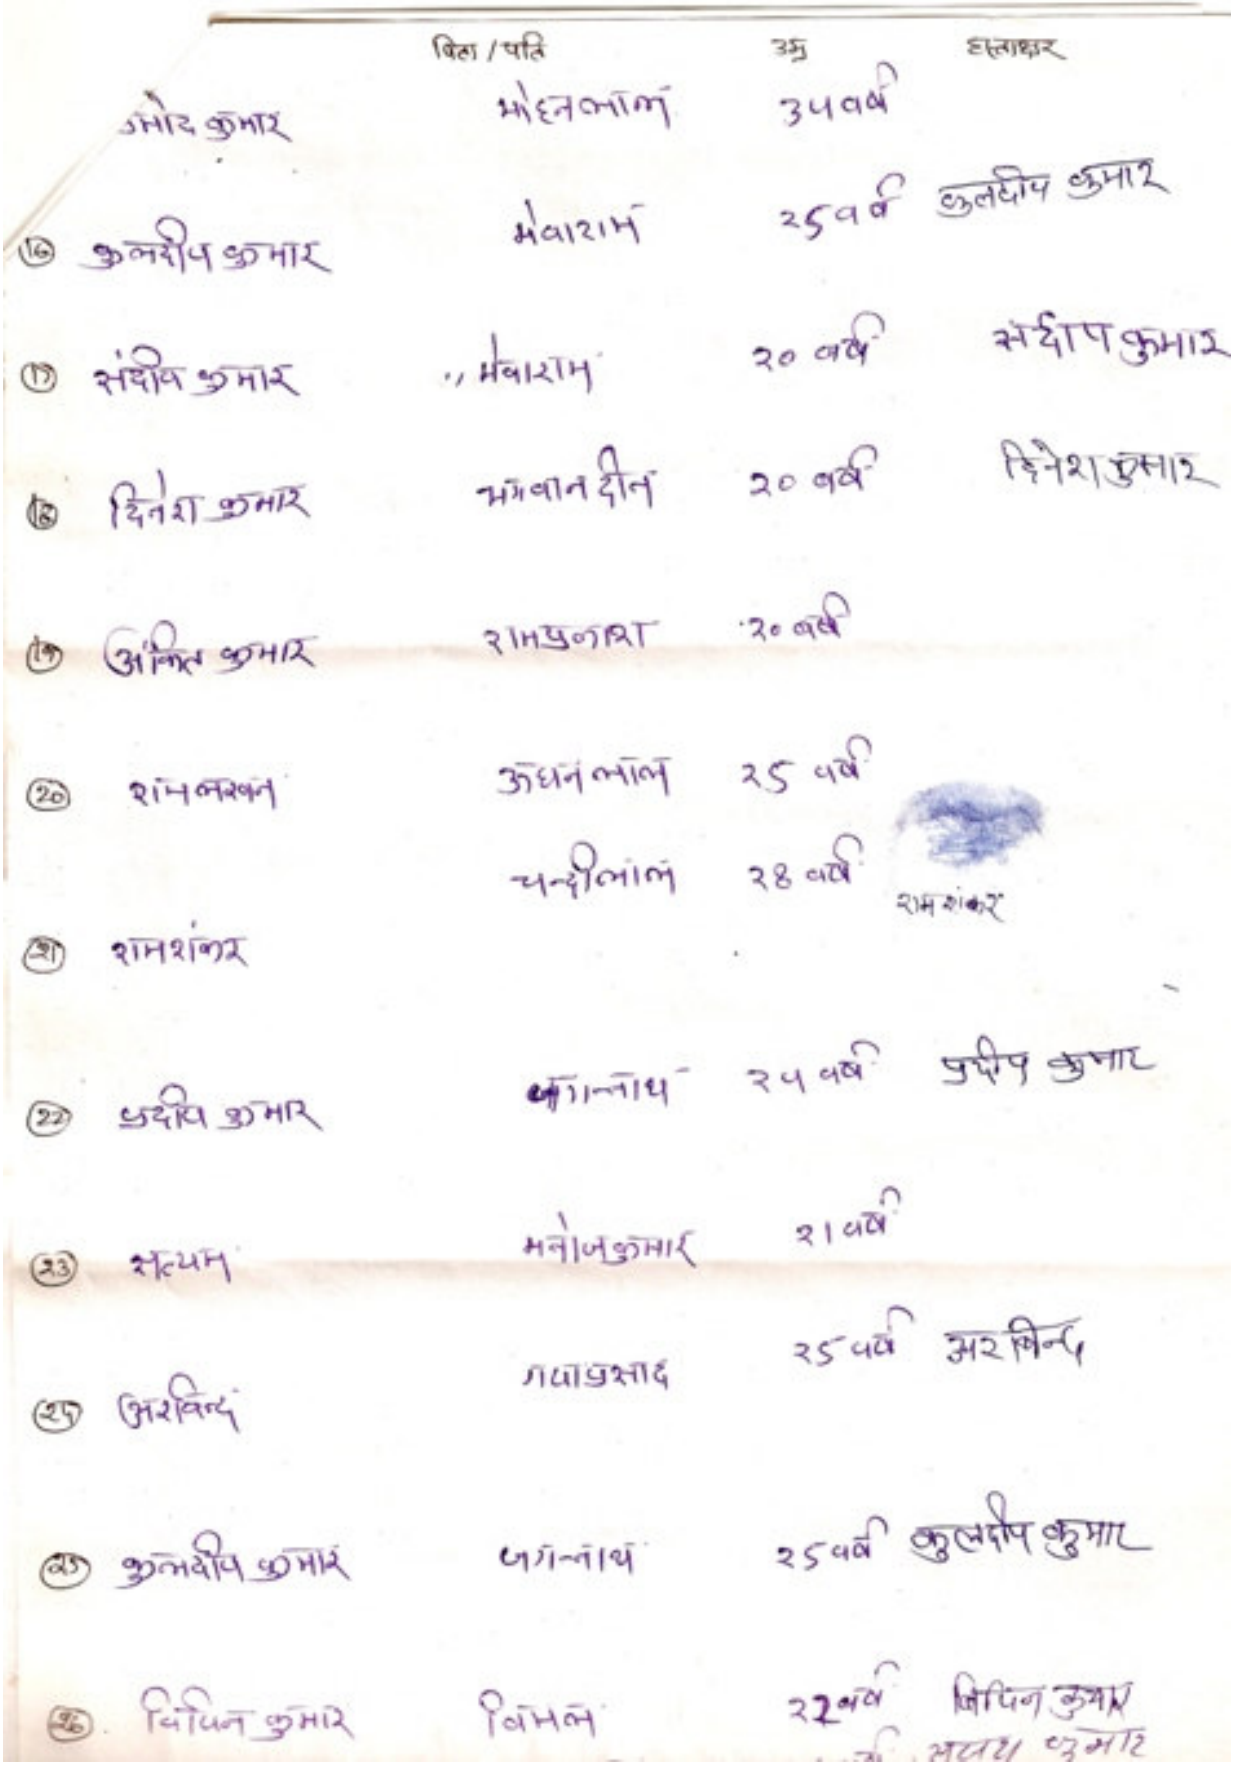 पिता / पति उम्र हस्ताक्षर
कुमार मोहनलाल ३५ वर्ष
(16) कुलदीप कुमार मेवाराम २5 वर्ष कुलदीप कुमार
(17) संदीप कुमार ,, मेवाराम २० वर्ष संदीप कुमार
(18) दिनेश कुमार भगवान दीन २० वर्ष दिनेश कुमार
(19) अंकित कुमार रामप्रकाश २० वर्ष
(20) रामलखन ऊधनलाल २5 वर्ष
चन्दीलाल २8 वर्ष रामशंकर
(२1) रामशंकर
(22) प्रदीप कुमार जगन्नाथ २५ वर्ष प्रदीप कुमार
(२3) सत्यम मनोजकुमार २1 वर्ष
गयाप्रसाद २5 वर्ष अरविन्द
अरविन्द
(२5) कुलदीप कुमार जगन्नाथ २5 वर्ष कुलदीप कुमार
(२6) विपिन कुमार विमल २2 वर्ष विपिन कुमार
कुमार